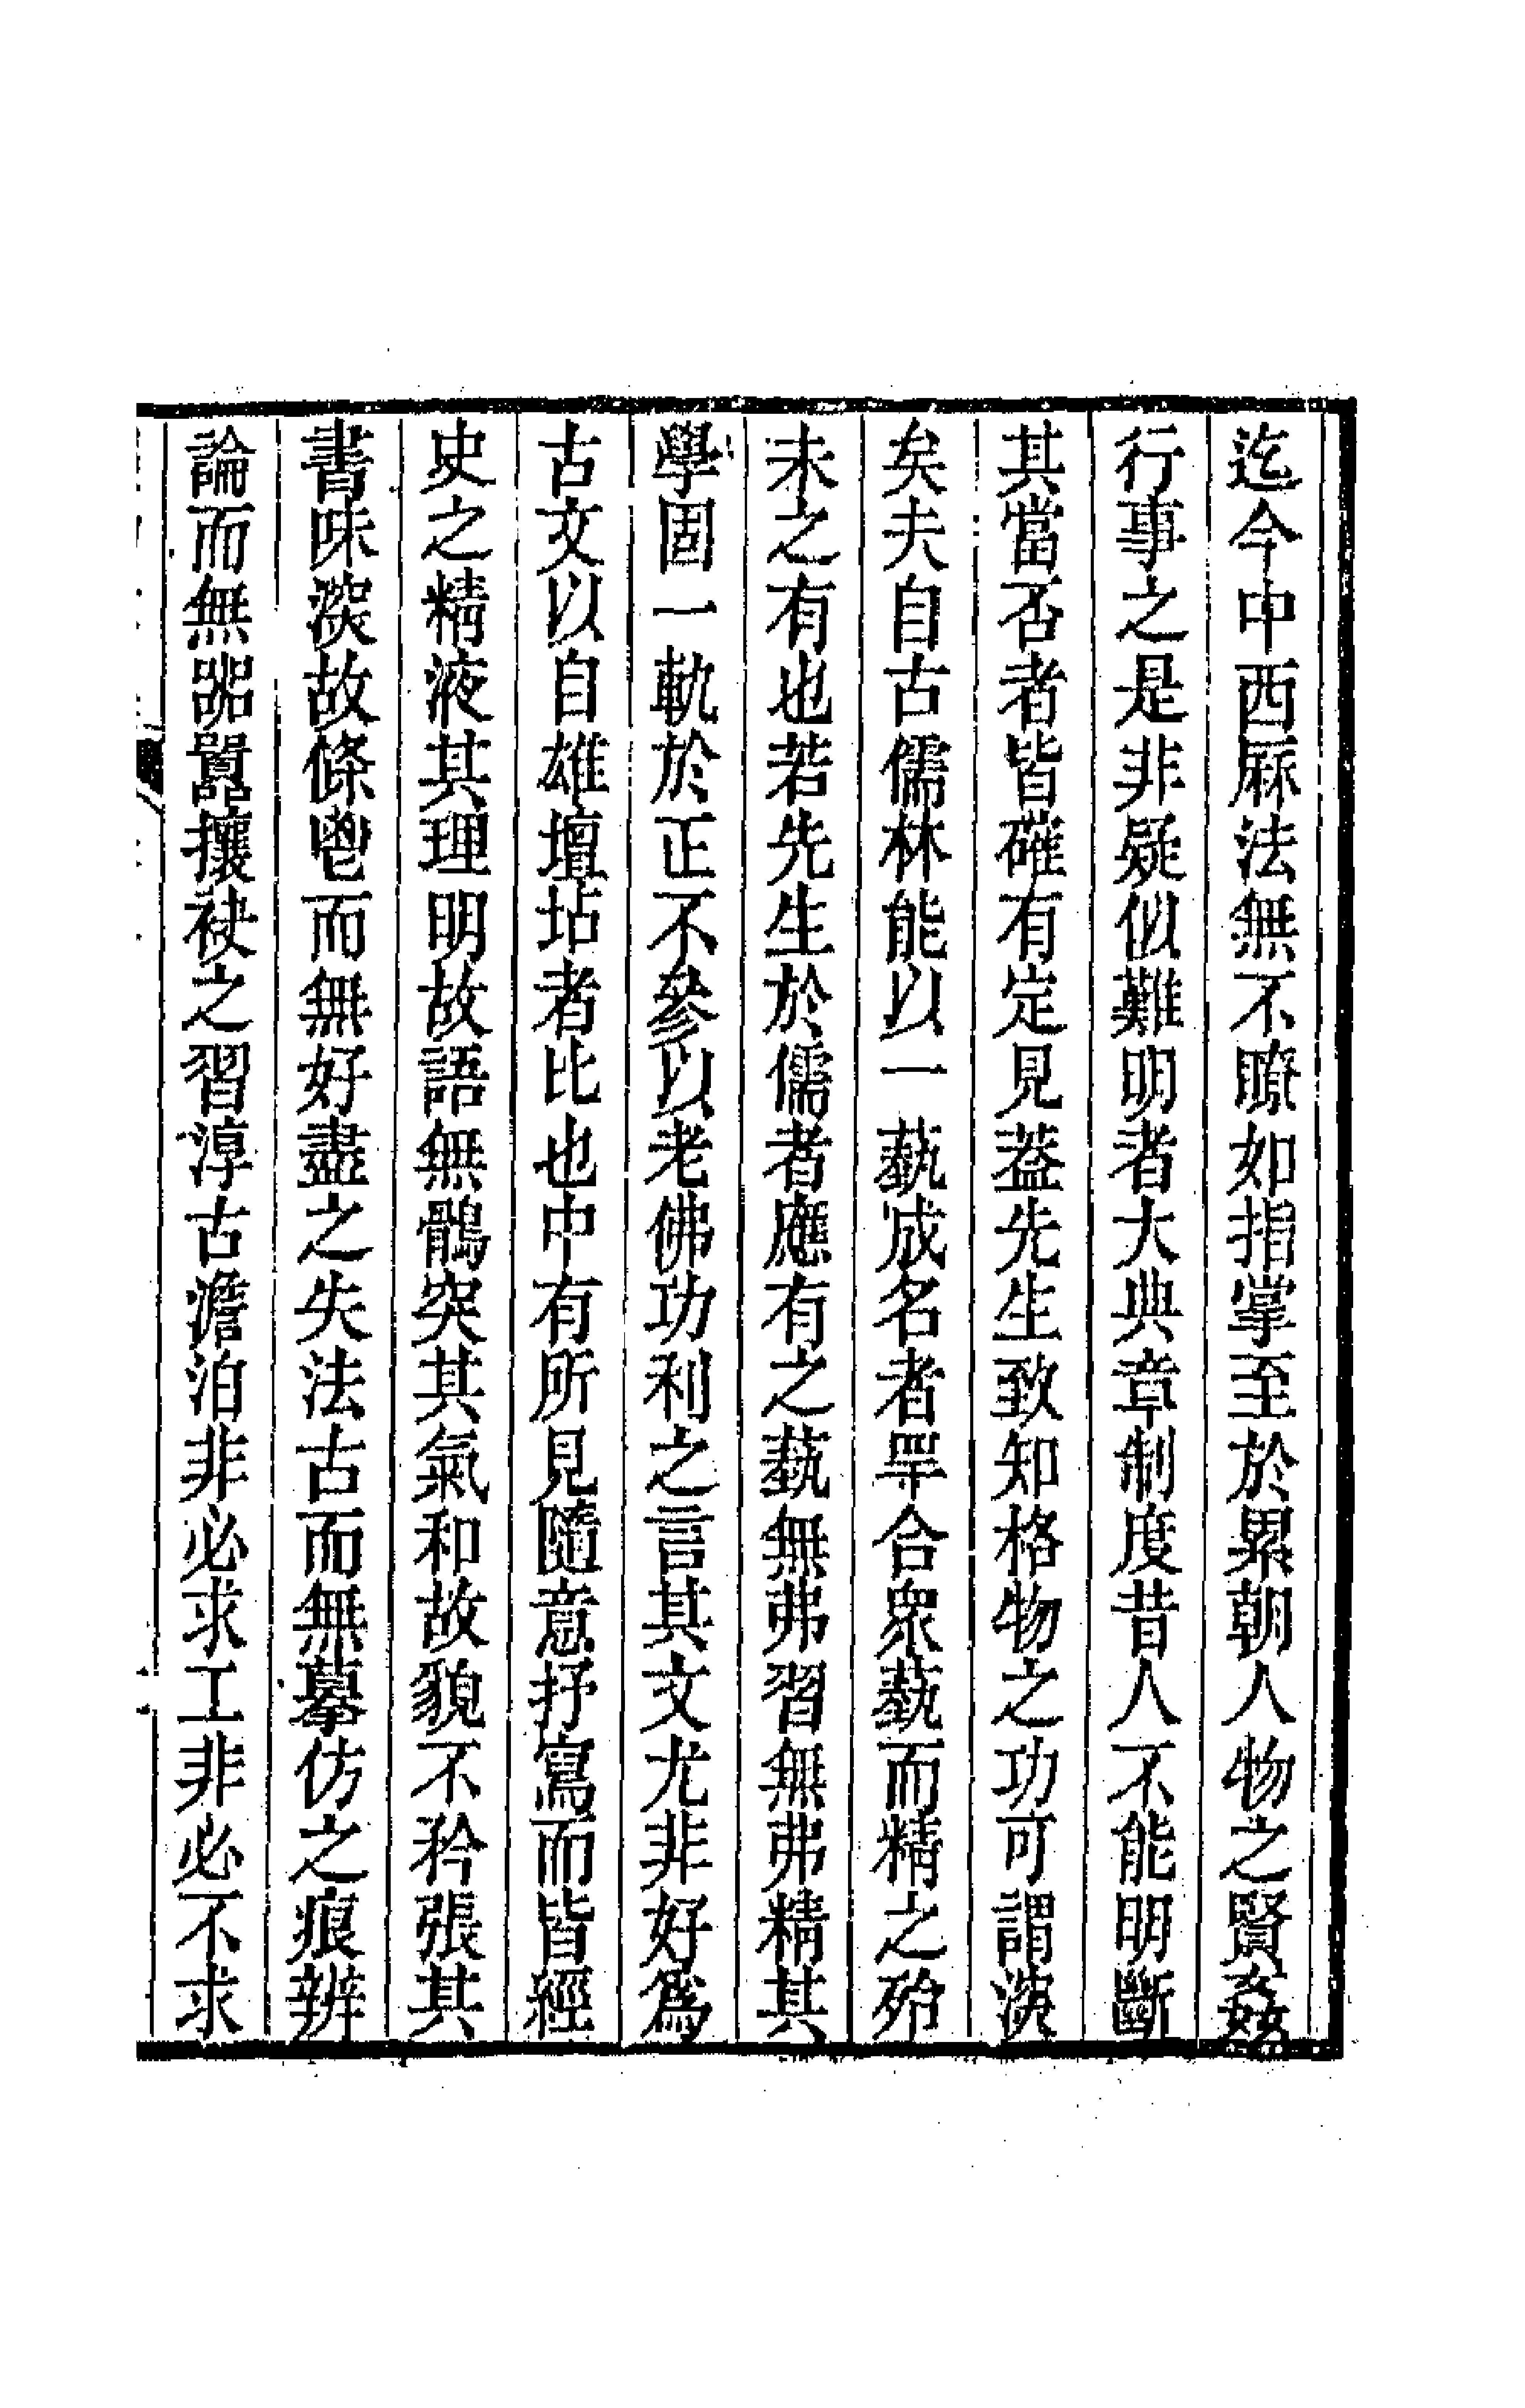 迄今中西厤法無不瞭如指掌至於累朝人物之賢姦
行事之是非疑似難明者大典章制度昔人不能明斷
其當否者皆確有定見葢先生致知格物之功可謂深
矣夫自古儒林能以一蓺成名者罕合衆蓺而精之殆
未之有也若先生於儒者應有之蓺無弗習無弗精其
學固一軌於正不參以老佛功利之言其文尤非好爲
古文以自雄壇坫者比也中有所見隨意抒寫而皆經
史之精液其理明故語無鶻突其氣和故貌不矜張其
書味深故條鬯而無好盡之失法古而無摹仿之痕辨
論而無嘂囂攘袂之習淳古澹泊非必求工非必不求